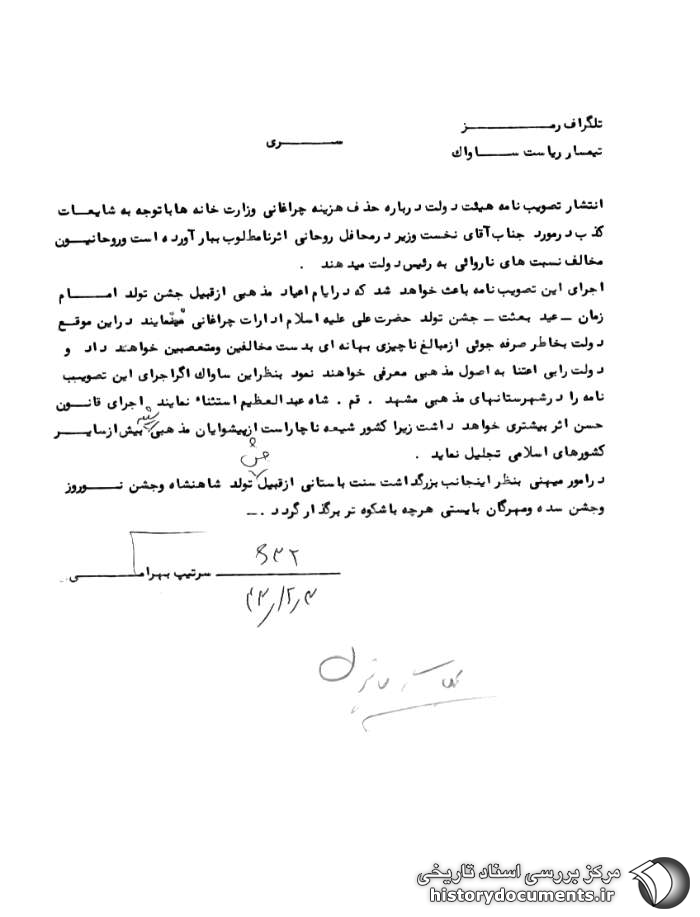 تلگراف رمز
سری
تیمسار ریاست ساواک
انتشار تصویب نامه هیئت دولت درباره حذف هزینه چراغانی وزارت خانه ها باتوجه به شایعات
کذب درمورد جناب آقای نخست وزیر درمحافل روحانی اثرنامطلوب ببار آورده است وروحانیون
مخالف نسبت های ناروائی به رئیس دولت میدهند .
اجرای این تصویب نامه باعث خواهد شد که درایام اعیاد مذهبی ازقبیل جشن تولد امام
زمان ـ عید بعثت ـ جشن تولد حضرت علی علیه اسلام ادارات چراغانی نمینمایند دراین موقع
دولت بخاطر صرفه جوئی ازمبالغ ناچیزی بهانه ای بدست مخالفین ومتعصبین خواهند داد و
دولت رابی اعتنا به اصول مذهبی معرفی خواهند نمود بنظراین ساواک اگراجرای این تصویب
نامه را درشهرستانهای مذهبی مشهد . قم . شاه عبدالعظیم استثناء نمایند اجرای قانون
حسن اثر بیشتری خواهد داشت زیرا کشور شیعه ناچاراست ازپیشوایان مذهبی بیش ازسایر
کشورهای اسلامی تجلیل نماید .
درامور میهنی بنظر اینجانب بزرگداشت سنت باستانی ازقبیل جشن تولد شاهنشاه وجشن نوروز
وجشن سده ومهرگان بایستی هرچه باشکوه تر برگذار گردد . ـ
سرتیپ بهرامی
مرکز بررسی اسناد تاریخی
historydocuments.ir